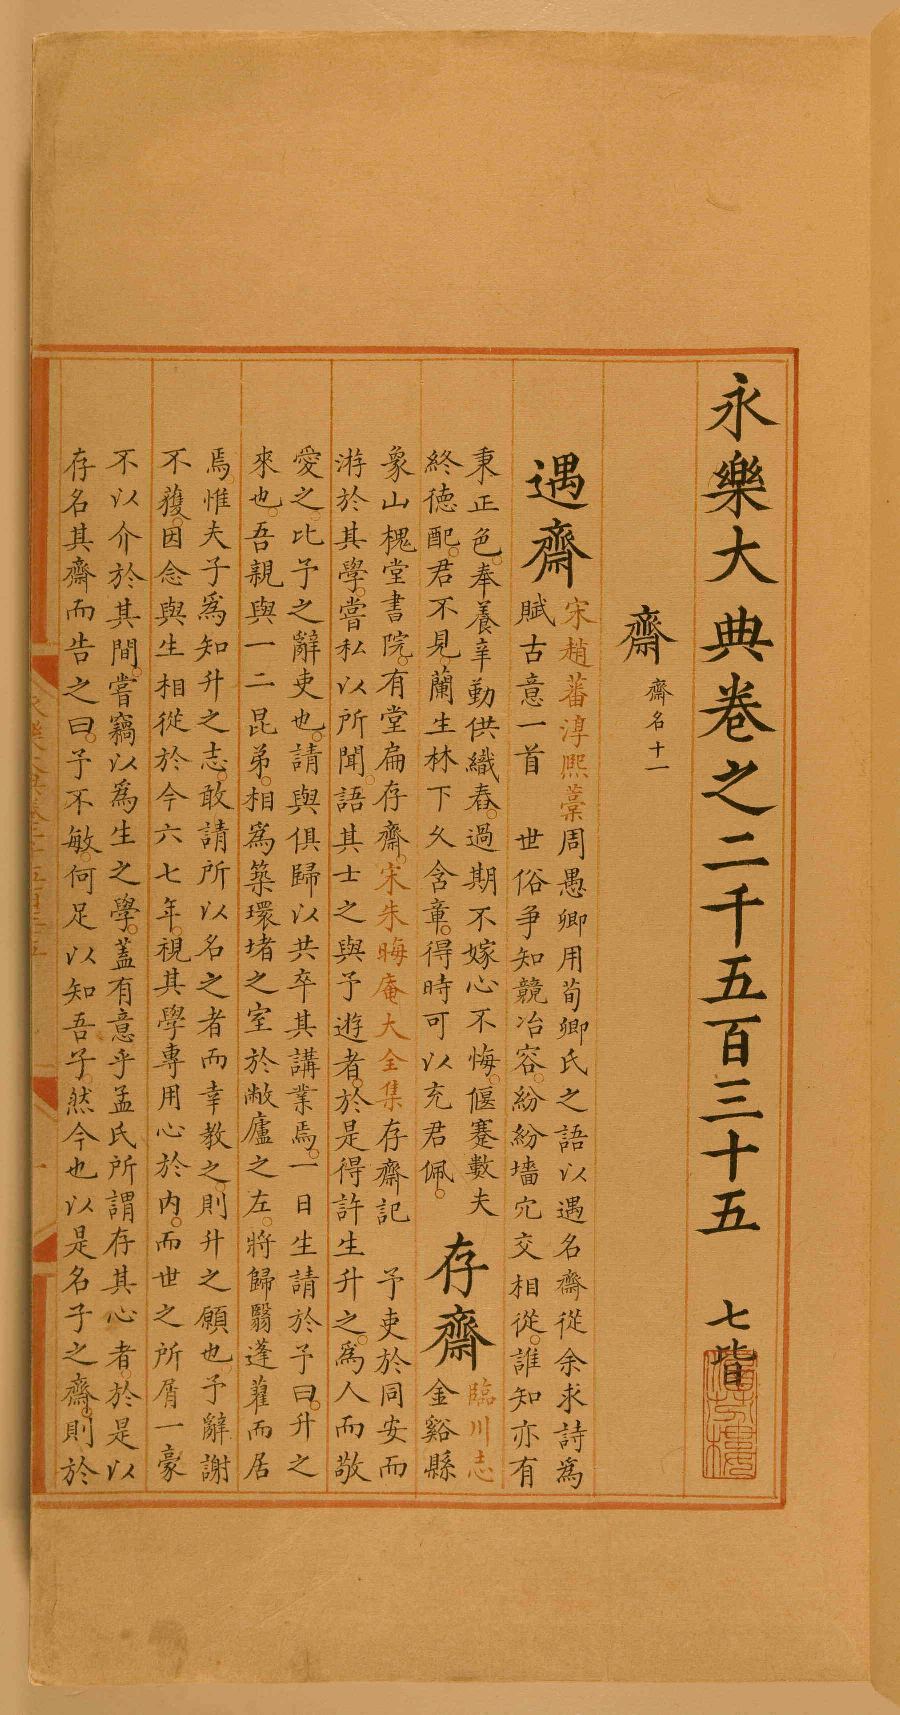 永樂大典卷之二千五百三十五 七皆
齋 齋名十一
遇齋 宋趙蕃淳熙藁周愚卿用荀卿氏之語以遇名齋從余求詩為
賦古意一首 世俗爭知競冶容紛紛墻穴交相從誰知亦有
秉正色奉養辛勤供織舂過期不嫁心不悔偃蹇數夫
終德配君不見蘭生林下久含章得時可以充君佩 存齋 臨川志
金谿縣
象山槐堂書院有堂扁存齋宋朱晦庵大全集存齋記 予吏於同安而
游於其學嘗私以所聞語其士之與予遊者於是得許生升之為人而敬
愛之比予之辭吏也請與俱歸以共卒其講業焉一日生請於予曰升之
來也吾親與一二昆弟相為築環堵之室於敝廬之左將歸翳蓬藋而居
焉惟夫子為知升之志敢請所以名之者而幸教之則升之願也予辭謝
不獲因念與生相從於今六七年視其學專用心於內而世之所屑一豪
不以介於其間嘗竊以為生之學蓋有意乎孟氏所謂存其心者於是以
存名其齋而告之曰予不敏何足以知吾子然今也以是名子之齋則於